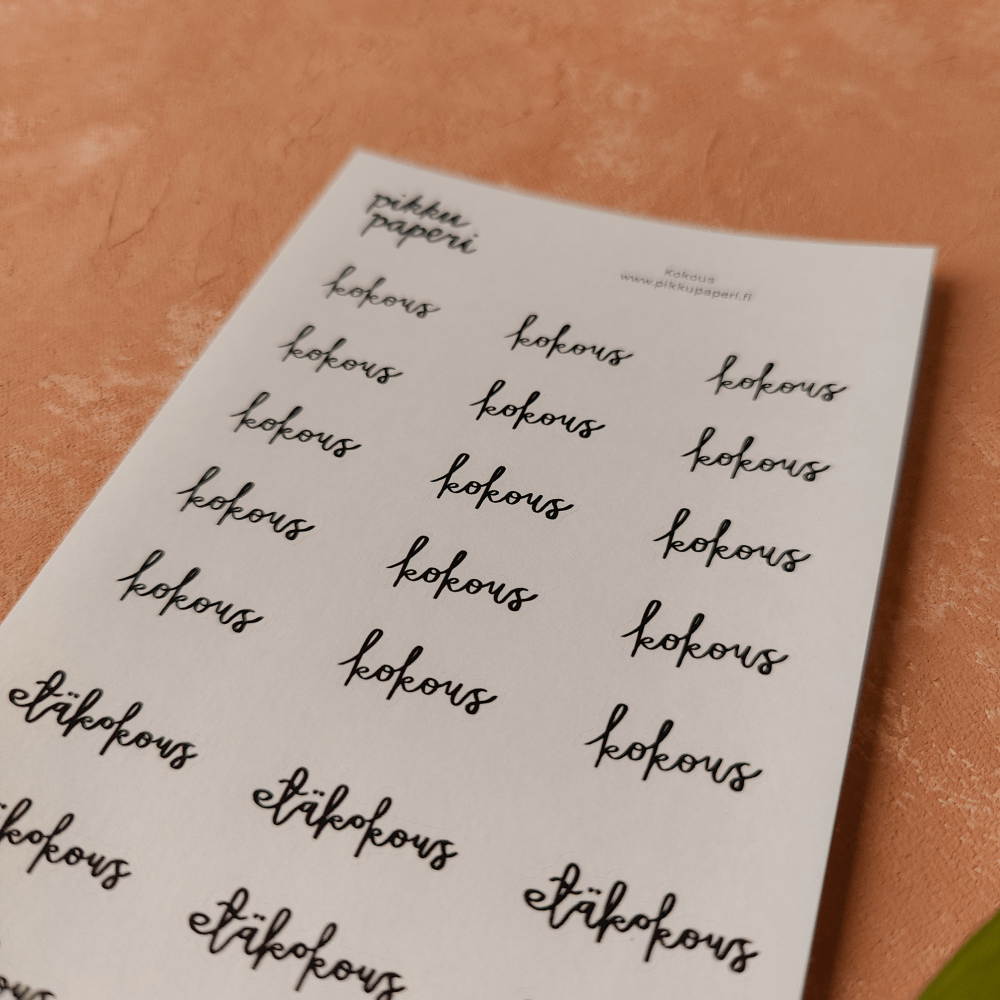 pikku
paperi
Kokous
www.pikkupaperi.fi
kokous kokous kokous
kokous kokous kokous
kokous kokous kokous
kokous kokous kokous
kokous kokous kokous
etäkokous etäkokous etäkokous
etäkokous